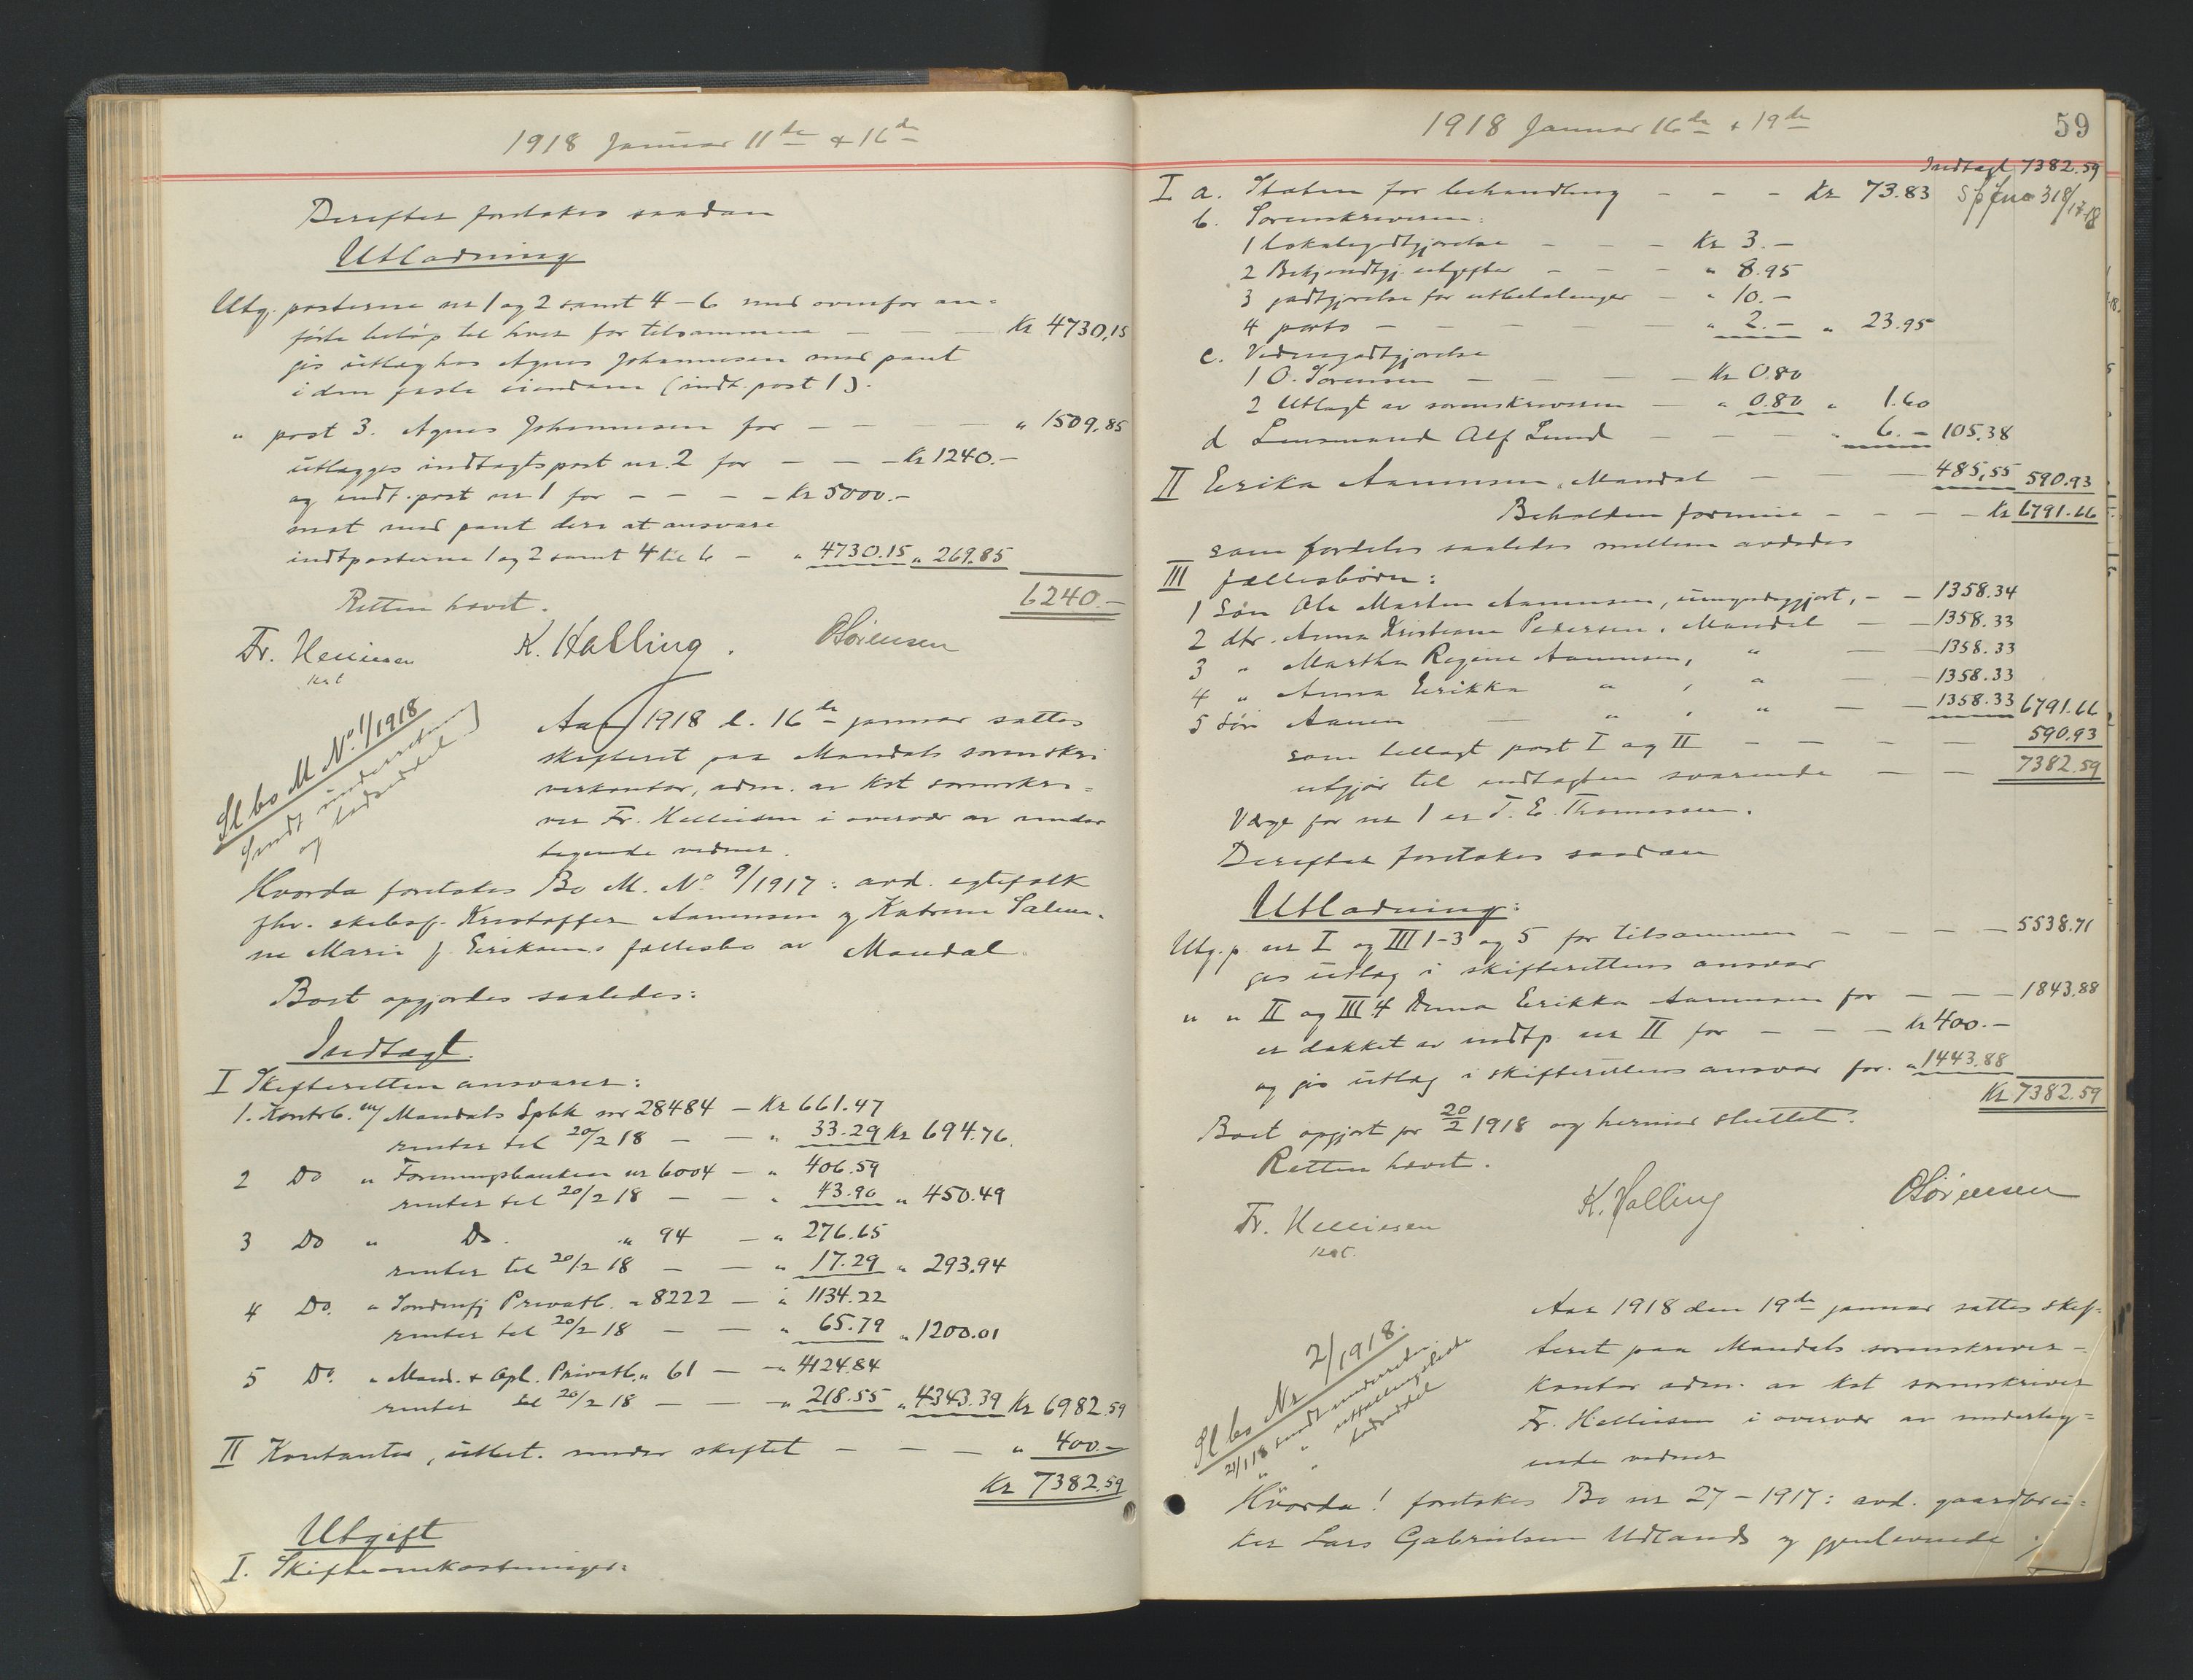 1918 Januar 11te & 16de
Derefter foretokes saadan
Utlodning
Utg. posterne nr 1 og 2 samt 4-6 med ovenfor an=
førte beløp til hver for tilsammen — — — Kr 4730,15
gis utlæg hos Agnes Johannesen mod pant
i den faste eiendom (indt. post 1).
" post 3. Agnes Johannesen for — — — " 1509,85
utlægges indtægtspost nr. 2 for — — - Kr 1240.-
og indt. post nr 1 for - - - - Kr 5000.-
mot med pant deri at ansvare
indtposterne 1 og 2 samt 4 til 6 - " 4730.15 " 269.85
6240.-
Retten hævet.
Fr. Helliesen K. Halling. O Sørensen
kst
Sl bo M No. 1/1918
Sendt underretning
og lodseddel
Aar 1918 d. 16de januar sattes
skifteret paa Mandals sorenskri
verkontor, adm. av kst sorenskri=
ver Fr. Helliesen i overvær av under
tegnede vidner.
Hvorda foretokes Bo M. No. 9/1917: avd. egtefolk
fhv. skibsf. Kristoffer Aanensen og Katrine Salem=
ne Marie f. Eriksens fællesbo av Mandal.
Boet opgjordes saaledes:
Indtægt.
I Skifteretten ansvarer:
1. Kontrb. m/ Mandals Spbk nr 28484 - Kr 661.47
renter til 20/2 18 - - " 33.29 Kr 694.76.
2 Do " Foreningsbanken nr 6004 - " 406.59
renter til 20/2 18 - - " 43.90 " 450.49
3 Do " Do. " 94 - " 276.65
renter til 20/2 18 - - " 17.29 " 293.94
4 Do. " Søndenfj Privatb. " 8222 - " 1134.22
renter til 20/2 18 - - " 65.79 " 1200.01
5 Do. " Mand. & Opl. Privatb. " 61 - " 4124.84
renter til 20/2 18 - - " 218.55 " 4343.39 Kr 6982.59
II Kontanter, utbet. under skiftet - - - " 400.-
Kr 7382.59
Utgift
I. Skifteomkostninger:
1918 Januar 16de & 19de
59
Indtægt 7382.59
I a. Staten for behandling - - - Kr 73.83
b. Sorenskriveren:
1 Lokalegodtgjørelse - - - Kr 3.-
2 Bekjendtgj. utgifter - - - " 8.95
3 godtgjørelse for utbetalinger - " 10.-
4 porto - - - - - " 2.- " 23.95
c. Vidnegodtgjørelse
1 O. Sørensen - - - - Kr 0.80
2 Utlagt av sorenskriveren - " 0.80 " 1.60
d Lensmand Alf Lund - - - " 6.- 105.38
II Eerika Aanensen, Mandal - - - 485,55 590.93
Beholden formue - - - - Kr 6791.66
som fordeles saaledes mellem avdødes
III fællesbørn:
1 Søn Ole Martin Aanensen, umyndiggjort, - - 1358.34
2 dtr. Anna Kristiane Pedersen, Mandal - - 1358.33
3 " Martha Regine Aanensen, " - - 1358.33
4 " Anna Eerikka " , " - - 1358.33
5 Søn Aanen - " , " - - 1358.33 6791.66
som tillagt post I og II - - - - 590.93
utgjør til indtægten svarende - - 7382.59
Værge for nr 1 er T. E. Thomassen.
Derefter foretokes saadan
Utlodning:
Utg. p. nr I og III 1-3 og 5 for tilsammen - - - - 5538.71
gis utlæg i skifterettens ansvar
" " II og III 4 Anna Eerikka Aanensen for - - - 1843.88
er dækket av indtp. nr II for - - - Kr 400.-
og gis utlæg i skifterettens ansvar for. " 1443.88
Kr 7382.59
Boet opgjort pr 20/2 1918 og hermed sluttet.
Retten hævet.
Fr. Helliesen K. Halling O Sørensen
kst.
Sl bo Nr 2/1918.
21/1 18 sendt underretn
" " utlodningsliste
" " lodseddel
Aar 1918 den 19de januar sattes skif=
teret paa Mandals sorenskriver=
kontor adm. av kst sorenskriver
Fr. Helliesen i overvær av underteg=
nede vidner
Hvorda! foretokes Bo nr 27-1917: avd. gaardbru=
ker Lars Gabrielsen Udlands og gjenlevende